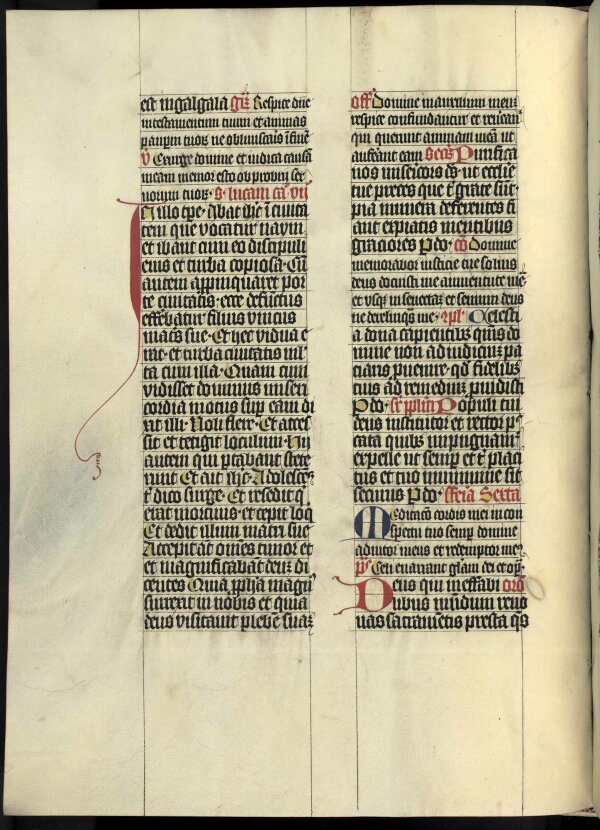 est in galgala Gr̄ Respice dn̄e
in testamentum tuum et animas
paupm̄ tuoꝝ ne obliuiscaris ī finē
v̄ Exurge domine et iudica causā
meam memor esto obprobrij ser
uorum tuoꝝ · S · lucam ca̅ vij
In illo tp̄e · Ibat ih̄c ī ciuita
tem que vocatur naym
et ibant cum eo discipuli
eius et turba copiosa · Cū
autem appinquaret por
te ciuitatis · ecce defūctus
efferebatur filius vnicus
mr̄is sue · Et hec vidua e
rat · et turba ciuitatis ml̄
ta cum illa · Quam cum
vidisset dominus miseri
cordia motus sup eam di
xit illi · Noli flere · Et acces
sit et tetigit loculum · Hij
autem qui portabant stete
runt Et ait ih̄c · Adolescēs
t̄ dico surge · Et resedit q̄
erat mortuus · et cepit loq̄
Et dedit illum matri sue
Accepit aūt om̄es timor et
et magnificabāt deū di
centes Quia ppha magn̄
surrexit in nobis et quia
deus visitauit plebē suaꝫ
Off̄ Domine in auxilium meuꝫ
respice confundantur et reuerāt̄
qui querunt animam meā ut
auferant eam Secr̄ Purifica
nos misericors ds̄ · ut ecclie
tue preces que t̄ grate sūt ·
pia munera deferentes fi
ant expiatis mentibus
graciores P do · Cō Domine
memorabor iusticie tue solius
deus docuisti me a iuuentute mea
et vsqꝫ in senectaꝫ et senium deus
ne derelinqs me · 9pl̄ Celesti
a dona capientibꝫ qs̄ do
mine non ad iudiciuꝫ pa
cians puenire · qd̄ fidelibꝫ
tuis ad remediuꝫ puidisti
P do · Sr̄ pplm̄ Populi tui
deus institutor et rector pc
cata quibꝫ impugnant̄
expelle ut semp et t̄ placi
tus et tuo munimine sit
securus P do · Feria Sexta
Meditacō cordis mei in con
spectu tuo semp domine
adiutor meus et redemptor me
ps̄ Celi enarrant gl̄am dei et op̄
Deus qui ineffabi Oro
libus mūdum reno
uas sacramētis presta qs̄